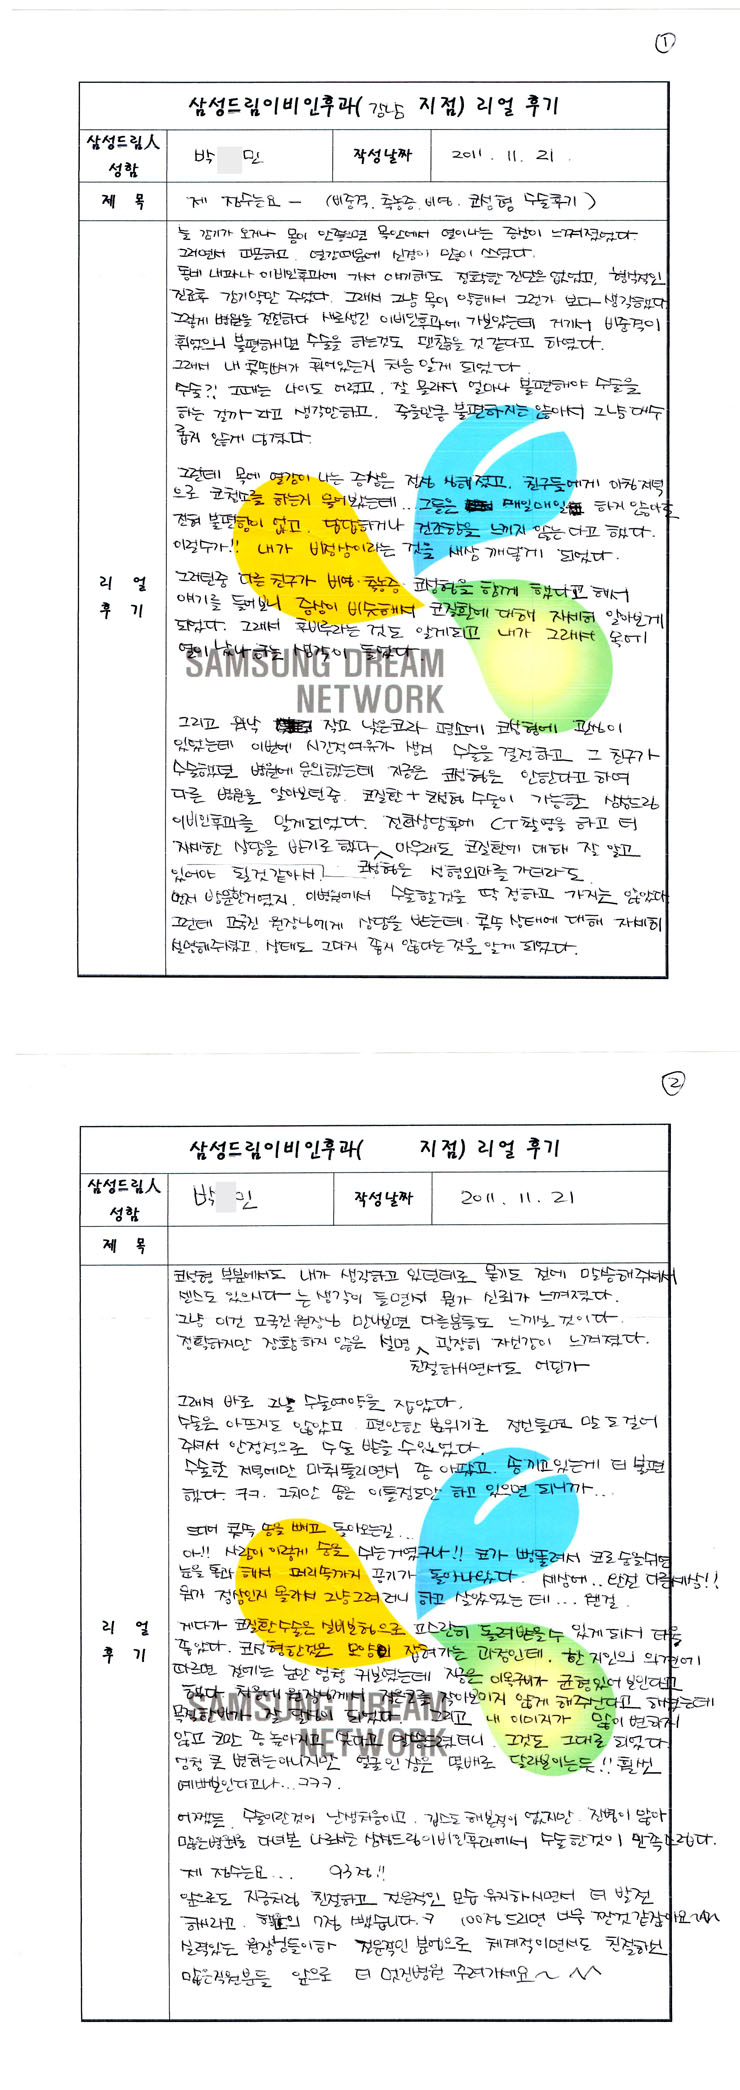 ①
삼성드림이비인후과( 강남 지점) 리얼 후기
삼성드림人
성함
박 민
작성날짜
2011. 11. 21.
제 목
제 점수는요 - (비중격, 축농증, 비염, 코성형 수술후기)
늘 감기가 오거나 몸이 안좋으면 목안에서 열이나는 증상이 느껴졌었다.
그러면서 피곤하고, 열감때문에 신경이 많이 쓰였다.
동네 내과나 이비인후과에 가서 얘기해도 정확한 진단은 없었고, 형식적인
진료후 감기약만 주었다. 그래서 그냥 목이 약해서 그런가 보다 생각했다.
그렇게 병원을 전전하다 새로생긴 이비인후과에 가보았는데 거기서 비중격이
휘었으니 불편하면 수술을 하는것도 괜찮을 것 같다고 하였다.
그래서 내 콧뼈가 휘어있는지 처음 알게 되었다.
수술?! 그때는 나이도 어렸고, 잘 몰라서 얼마나 불편해야 수술을
하는 걸까 라고 생각만하고, 죽을만큼 불편하지는 않아서 그냥 대수
롭지 않게 넘겼다.
그런데 목에 열감이 나는 증상은 점점 심해졌고, 친구들에게 아침저녁
으로 코청소를 하는지 물어봤는데... 그들은 매일매일 하지 않아도
전혀 불편함이 없고, 답답하거나 건조함을 느끼지 않는 다고 했다.
이럴수가!! 내가 비정상이라는 것을 새삼 깨닫게 되었다.
리 얼
후 기
그러던중 다른 친구가 비염·축농증·코성형을 함께 했다고 해서
얘기를 들어보니 증상이 비슷해서 코질환에 대해 자세히 알아보게
되었다. 그래서 후비루라는 것도 알게되고 내가 그래서 목에
열이 났나 하는 생각이 들었다.
SAMSUNG DREAM
NETWORK
그리고 워낙 작고 낮은코라 평소에 코성형에 관심이
있었는데 이번에 시간적여유가 생겨 수술을 결정하고 그 친구가
수술했던 병원에 문의했는데 지금은 코성형은 안한다고 하여
다른 병원을 알아보던중, 코질환+코성형 수술이 가능한 삼성드림
이비인후과를 알게되었다. 전화상담후에 CT촬영을 하고 더
자세한 상담을 받기로 했다. 아무래도 코질환에 대해 잘 알고
있어야 될것 같아서. 코성형은 성형외과를 가더라도
먼저 방문한거였지, 이병원에서 수술할것을 딱 정하고 가지는 않았다.
그런데 고국진 원장님에게 상담을 받는데 콧속 상태에 대해 자세히
설명해주셨고, 상태도 그다지 좋지 않다는 것을 알게 되었다.
②
삼성드림이비인후과( 지점) 리얼 후기
삼성드림人
성함
박 민
작성날짜
2011. 11. 21
제 목
코성형 부분에서도 내가 생각하고 있던데로 묻기도 전에 말씀해주셔서
센스도 있으시다~ 는 생각이 들면서 뭔가 신뢰가 느껴졌다.
그냥 이건 고국진원장님 만나보면 다른분들도 느끼실 것이다.
정확하지만 장황하지 않은 설명, 굉장히 자신감이 느껴졌다.
친절하시면서도 어딘가
그래서 바로 그날 수술예약을 잡았다.
수술은 아프지도 않았고, 편안한 분위기로 정선들며 말도 걸어
주셔서 안정적으로 수술 받을 수있었다.
수술한 저녁에만 마취풀리면서 좀 아팠고, 솜끼고있는게 더 불편
했다. ㅋㅋ. 그치만 솜은 이틀정도만 하고 있으면 되니까...
드디어 콧속 솜을 빼고 돌아오는길...
아!! 사람이 이렇게 숨을 쉬는거였구나!! 코가 뻥뚫려서 코로숨을쉬면
눈을 통과 해서 머리속까지 공기가 돌아나왔다. 세상에.. 완전 다른세상!!
뭐가 정상인지 몰라서 그냥그러려니 하고 살았었는데... 웬걸.
리 얼
후 기
게다가 코질환수술은 실비보험으로 고스란히 돌려받을수 있게 되서 더욱
좋았다. 코성형한것은 모양이 잡혀가는 과정인데, 한 지인의 의견에
따르면 전에는 눈만 엄청 커보였는데 지금은 이목구비가 균형있어 보인다고
했다. 처음에 원장님께서 작은코를 작아보이지 않게 해주신다고 해줬는데
목적한바가 잘 달성이 되었다. 그리고 내 이미지가 많이 변하지
않고 코만 좀 높아지고 싶다고 말씀드렸더니, 그것도 그대로 되었다.
엄청 큰 변화는아니지만 얼굴인상은 몇배로 달라보이는듯!! 훨씬
예뻐보인다고나...ㅋㅋㅋ.
SAMSUNG DREAM
NETWORK
어쨌든, 수술이란것이 난생처음이고, 깁스도 해본적이 없지만, 잔병이 많아
많은병원을 다녀본 나로서는 삼성드림이비인후과에서 수술한것이 만족스럽다.
제 점수는요... 93점!!
앞으로도 지금처럼 친절하고 전문적인 모습 유지하시면서 더 발전
하시라고, 7점 뺐습니다.ㅋ 100점 드리면 너무 짠것같잖아요~^^
실력있는 원장님들이하 전문적인 분야으로 체계적이면서도 친절하신
많은직원분들 앞으로 더 멋진병원 꾸려가세요~ ^^